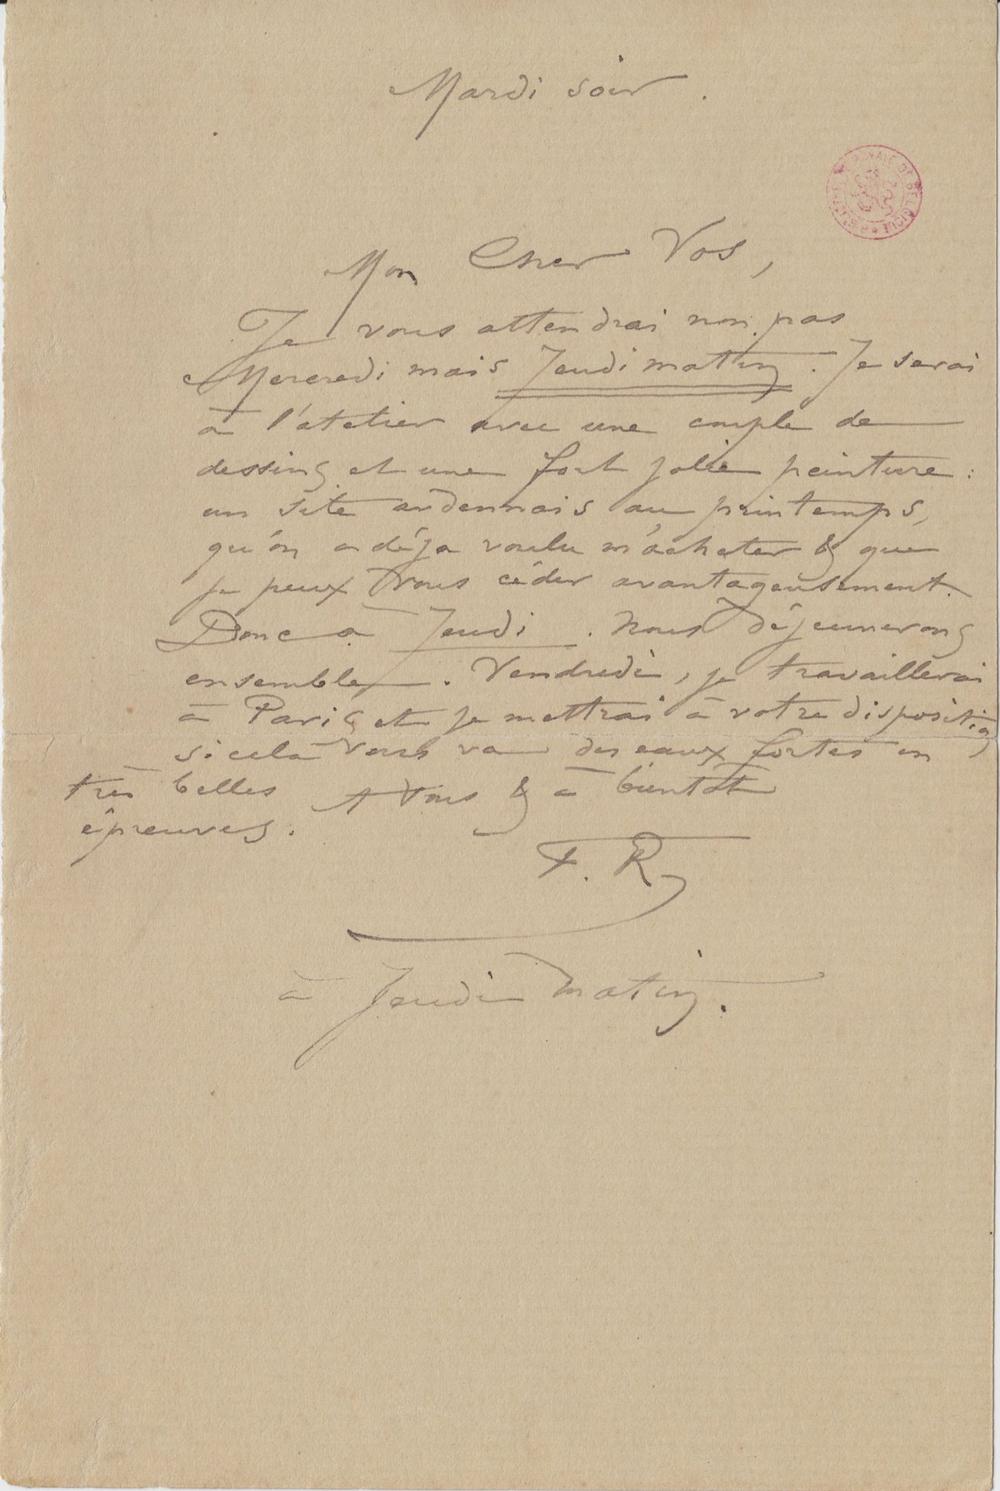 Mardi soir.
BIBLIOTHEQUE ROYALE DE BELGIQUE
Mon Cher Vos,
Je vous attendrai non pas
Mercredi mais Jeudi matin. Je serai
à l'atelier avec une couple de
dessins et une fort jolie peinture :
un site ardennais au printemps,
qu'on a déja voulu m'acheter & que
je peux vous céder avantageusement.
Donc a Jeudi. Nous déjeunerons
ensemble. Vendredi, je travaillerai
à Paris et je mettrai à votre disposition,
si cela vous va des eaux fortes en
très belles
épreuves.
A vous & à bientôt
F. R
à Jeudi matin.